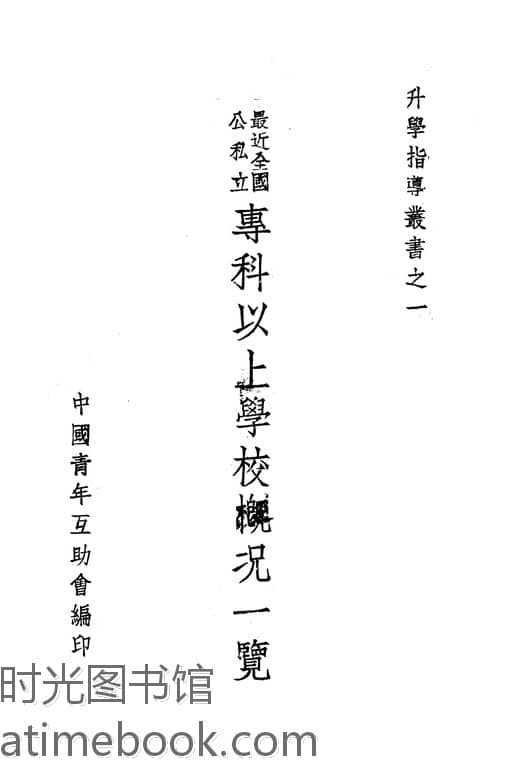 升學指導叢書之一
最近全國
公私立
專科以上學校概況一覽
中國青年互助會編印
时光图书馆
atimebook.com